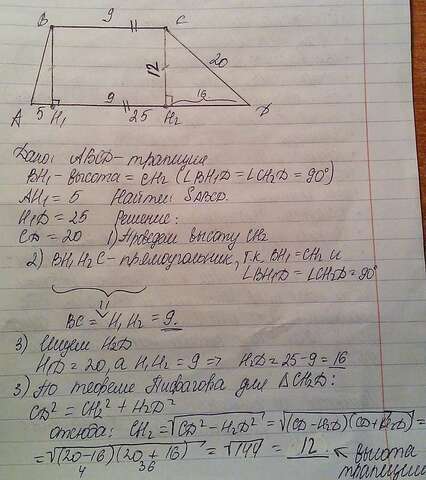 B 9 C
12 20
16
A 5 H₁ 9 25 H₂ D
Дано: ABCD – трапеция
BH₁ – высота = CH₂ (∟BH₁D = ∟CH₂D = 90°)
AH₁ = 5 Найти: SABCD.
H₁D = 25 Решение:
CD = 20 1) Проведем высоту CH₂
2) BH₁H₂C – прямоугольник, т.к. BH₁ = CH₂ и
∟BH₁D = ∟CH₂D = 90°
BC = H₁H₂ = 9.
3) Ищем H₂D
H₁D = 20, а H₁H₂ = 9 => H₂D = 25 – 9 = 16
3) По теореме Пифагора для ΔCH₂D:
CD² = CH₂² + H₂D²
отсюда: CH₂ = √CD² – H₂D² = √(CD – H₂D)(CD + H₂D) =
= √(20 – 16)(20 + 16) = √144 = 12. ← высота
4 36 трапеции